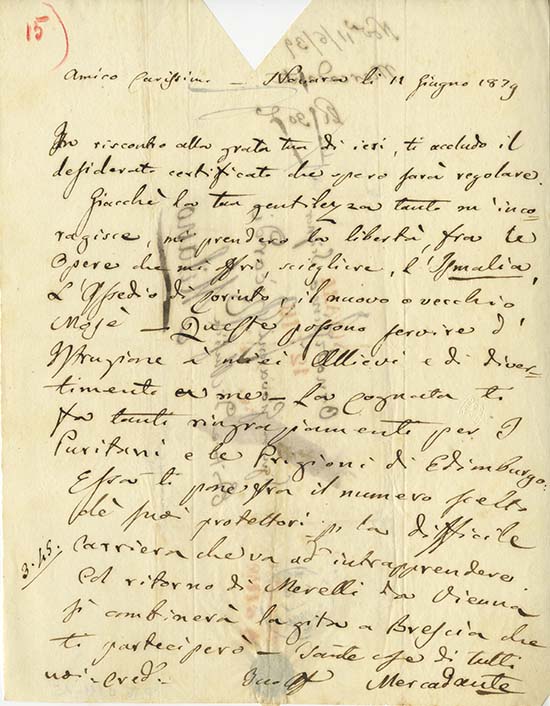 15
Amico Carissimo — Novara li 11 Giugno 1839
In riscontro alla grata tua di ieri, ti accludo il
desiderato certificato che spero sarà regolare.
Giacchè la tua gentilezza tanto m'inco-
ragisce, mi prendero la libertà, fra le
Opere che mi offri, sciegliere, l'Ismalia,
L'Assedio di Corinto, il nuovo o vecchio
Mosè — Queste possono servire d'
Istruzione a' miei Allievi e di diver-
timento a me — La Cognata ti
fa tanti ringraziamenti per I
Puritani e le Prigioni di Edimburgo.
Essa ti pone fra il numero scelto
de' suoi protettori p la difficile
3.45.
Carriera che va ad intrapprendere.
Col ritorno di Merelli da Vienna
si combinerà la gita a Brescia che
ti parteciperò — Tante cose di tutti
noi — Cred. Mercadante